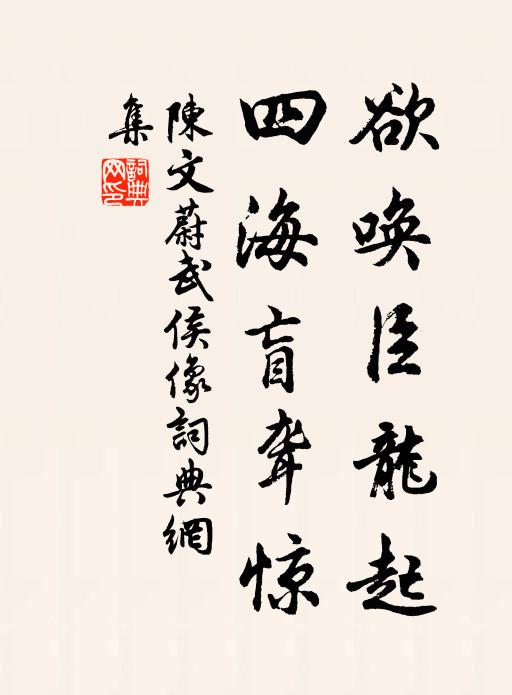 欲唤臣龍起
四海盲聋惊
陳文蔚武侯像詞典網
集
詞典網印